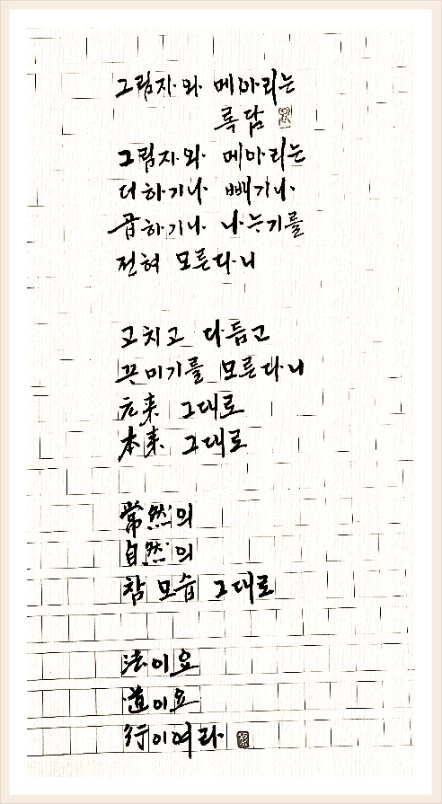 그림자와 메아리는
록담
그림자와 메아리는
더하기나 빼기나
곱하기나 나눗기를
전혀 모른다니
고치고 다듬고
꾸미기를 모른다니
元来 그대로
本来 그대로
常然의
自然의
참 모습 그대로
法이요
道이요
行이여라